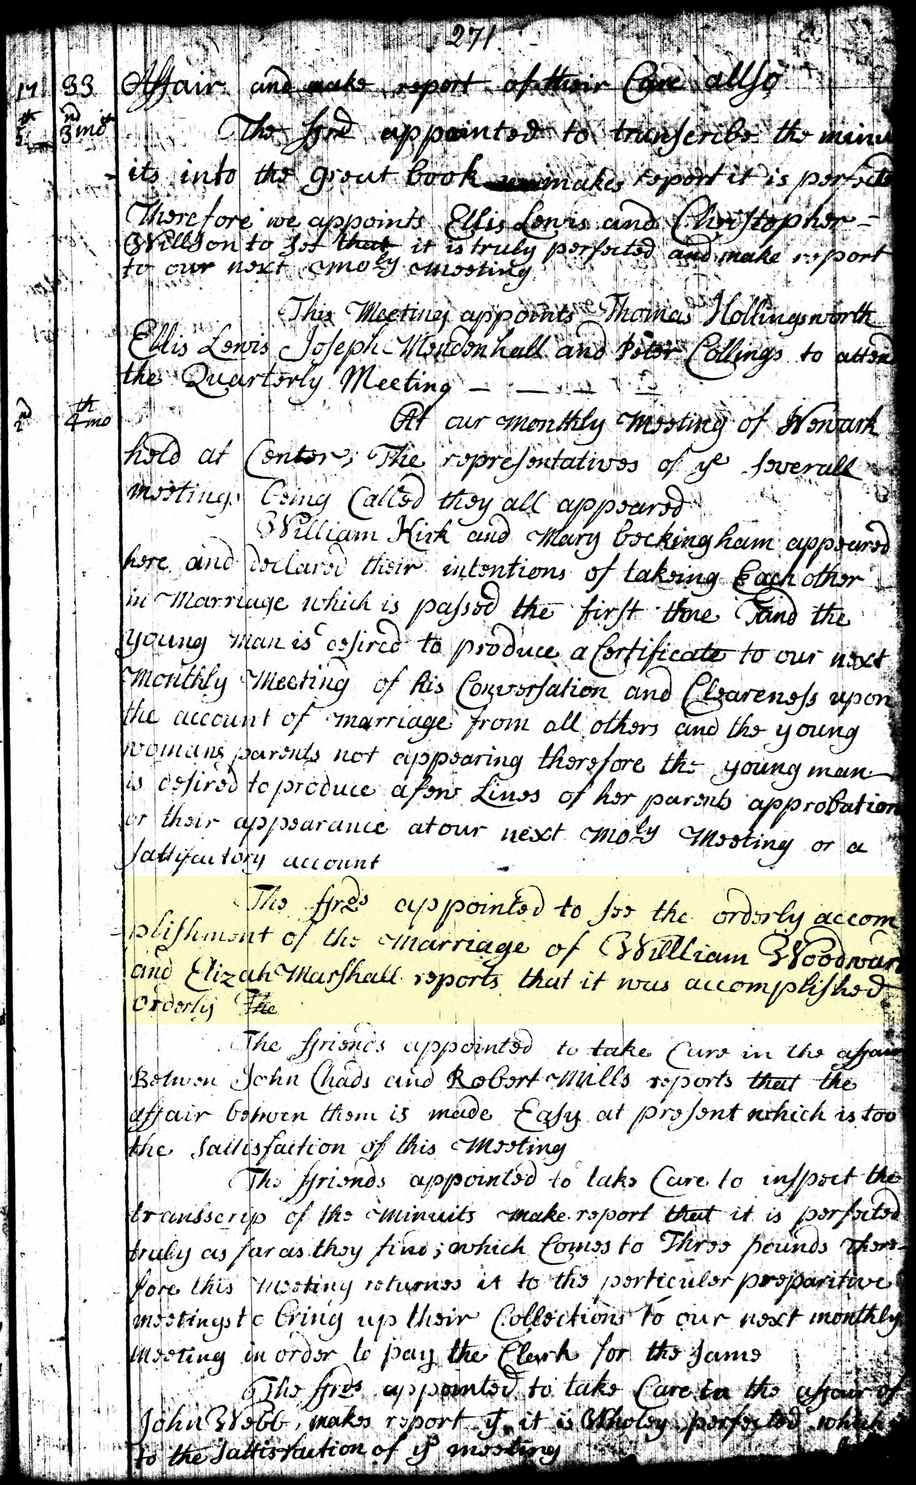 271
17 33 Affair and make report of their Care allso
th 3 mo
The ffrds appointed to transcribe the minu
its into the great book makes report it is perfected
Therefore we appoints Ellis Lewis and Christopher
Willson to see that it is truly perfected and make report
to our next moly meeting
This Meeting appoints Thomas Hollingsworth
Ellis Lewis Joseph Mendenhall and Peter Collings to attend
the Quarterly Meeting
4th mo At our monthly Meeting of Newark
held at Center; The representatives of ye severall
meetings being Called they all appeared
William Kirk and Mary beckingham appeared
here and declared their intentions of takeing Each other
in Marriage which is passed the first time and the
young man is desired to produce a Certificate to our next
Monthly Meeting of his Conversation and Cleareness upon
the account of marriage from all others and the young
womans parents not appearing therefore the young man
is desired to produce a few Lines of her parents approbation
or their appearance at our next moly Meeting or a
sattisfactory account
The ffrds appointed to see the orderly accom
plishment of the Marriage of Willliam Woodward
and Elizah Marshall reports that it was accomplished
orderly The
The ffriends appointed to take Care in the affair
Betwen John Chads and Robert Mills reports that the
affair betwen them is made Easy at present which is too
the sattisfaction of this Meeting
The ffriends appointed to take Care to inspect the
transscrip of the Minuits make report that it is perfected
truly as far as they find; which Comes to Three pounds There-
fore this Meeting returnes it to the perticuler preparitive
meetings to bring up their Collections to our next monthly
meeting in order to pay the Clerk for the same
The ffrds appointed to take Care in the affair of
John Webb, makes report yt it is Wholey perfected which
to the sattisfaction of ys meeting